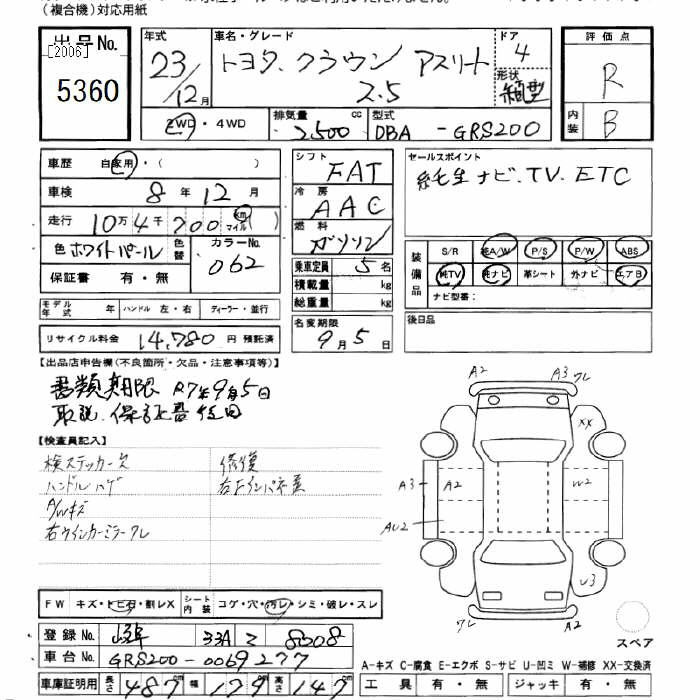 (複合機)対応用紙
出品No.
[2006]
5360
年式 23/12月
車名・グレード トヨタ. クラウン アスリート 2.5
ドア 4
形状 箱型
評価点 R
内装 B
2WD・4WD
排気量 2,500 cc
型式 DBA - GRS200
車歴 自家用・( )
車検 8年 12月
走行 10万4千700 km マイル( )
色 ホワイトパール 色替
カラーNo. 062
保証書 有・無
モデル年式 年 ハンドル 左・右 ディーラー・並行
リサイクル料金 14,780円 預託済
シフト FAT
冷房 AAC
燃料 ガソリン
乗車定員 5名
積載量 kg
総重量 kg
名変期限 9月5日
セールスポイント
純正ナビ.TV.ETC
装備品 S/R 純A/W P/S P/W ABS
純TV 純ナビ 革シート 外ナビ エアB
ナビ型番:
後日品
【出品店申告欄(不良箇所・欠品・注意事項等)】
書類期限 R7年9月5日
取説.保証書後日
【検査員記入】
検ステッカー欠
ハンドルハゲ
A/Wキズ
右ウインカーミラーワレ
修復
A2
A3 ワレ
XX
A3
A2
W2
AU2
U3
ワレ
A2
スペア
FW キズ・トビ石・割レX シート内装 コゲ・穴・汚レ・シミ・破レ・スレ
登録No. 岐阜 33A 8308
車台No. GRS200-0069277
車庫証明用 長さ 487cm 幅 179cm 高さ 147cm
A-キズ C-腐食 E-エクボ S-サビ U-凹ミ W-補修 XX-交換済
工具 有・無 ジャッキ 有・無